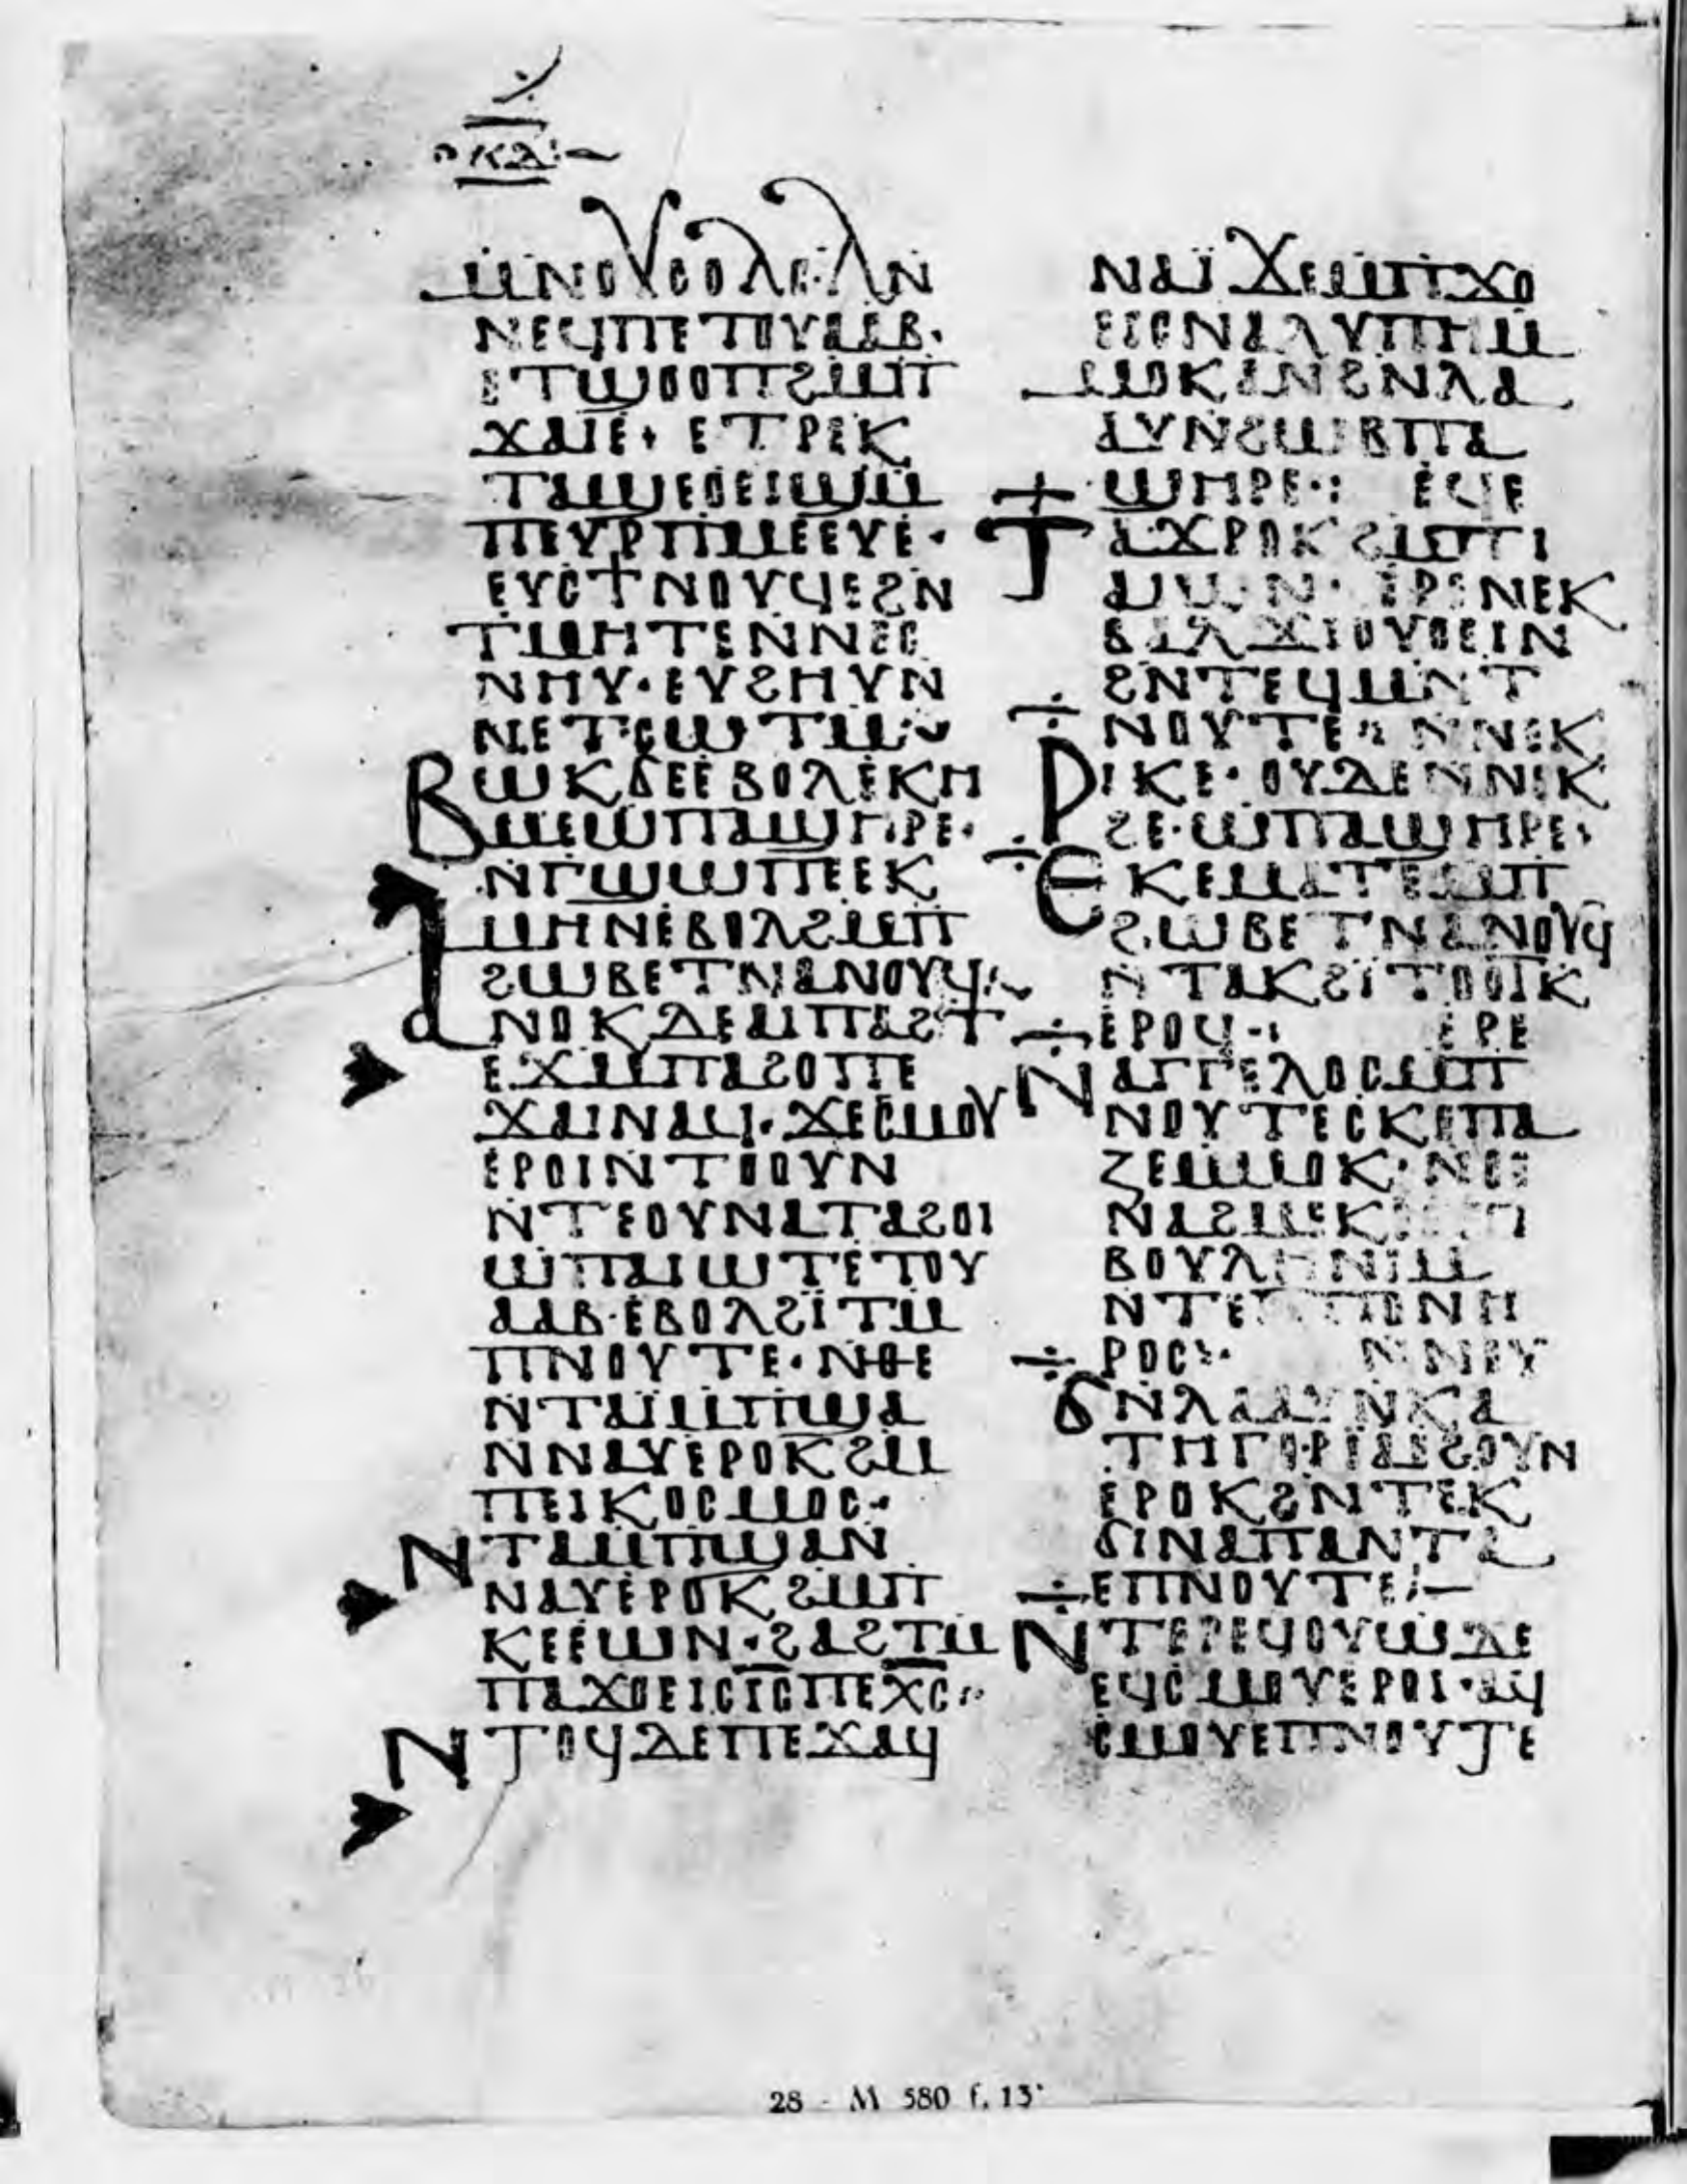 ⲕⲇ
ⲙⲛⲟⲩⲥⲟⲗⲥⲗⲛ
ⲛⲉϥⲡⲉⲧⲟⲩⲁⲁⲃ·
ⲉⲧϣⲟⲟⲡϩⲙⲡ
ϫⲁⲓⲉ· ⲉⲧⲣⲉⲕ
ⲧⲁϣⲉⲟⲉⲓϣⲙ
ⲡⲉⲩⲣⲡⲙⲉⲉⲩⲉ·
ⲉⲩⲥϯⲛⲟⲩϥⲉϩⲛ
ⲧⲙⲏⲧⲉⲛⲛⲉⲥ
ⲛⲏⲩ·ⲉⲩϩⲏⲩⲛ
ⲛⲉⲧⲥⲱⲧⲙ
ⲃⲱⲕϭⲉⲉⲃⲟⲗⲉⲕⲏ
ⲙⲉⲱⲡⲁϣⲏⲣⲉ·
ⲛⲅϣⲱⲡⲉⲉⲕ
ⲙⲏⲛⲉⲃⲟⲗϩⲙⲡ
ϩⲱⲃⲉⲧⲛⲁⲛⲟⲩϥ
ⲁⲛⲟⲕⲇⲉⲁⲓⲡⲁϩⲧ
ⲉϫⲙⲡⲁϩⲟⲡⲉ
ϫⲁⲓⲛⲁϥ·ϫⲉⲥⲙⲟⲩ
ⲉⲣⲟⲓⲛⲧⲟⲟⲩⲛ
ⲛⲧⲉⲟⲩⲛⲁⲧⲁϩⲟⲓ
ⲱⲡⲁⲓⲱⲧⲉⲧⲟⲩ
ⲁⲁⲃ·ⲉⲃⲟⲗϩⲓⲧⲙ
ⲡⲛⲟⲩⲧⲉ·ⲛⲑⲉ
ⲛⲧⲁⲓⲙⲡϣⲁ
ⲛⲛⲁⲩⲉⲣⲟⲕϩⲙ
ⲡⲉⲓⲕⲟⲥⲙⲟⲥ·
ⲛⲧⲁⲙⲡϣⲁⲛ
ⲛⲁⲩⲉⲣⲟⲕϩⲙⲡ
ⲕⲉⲉⲱⲛ·ϩⲁϩⲧⲙ
ⲡⲁϫⲟⲉⲓⲥⲓⲥⲡⲉⲭⲥ
ⲛⲧⲟϥⲇⲉⲡⲉϫⲁϥ
ⲛⲁⲓ̈ϫⲉⲙⲡϫⲟ
ⲉⲓⲥⲛⲁⲗⲩⲡⲏⲙ
ⲙⲟⲕⲁⲛϩⲛⲗⲁ
ⲁⲩⲛϩⲱⲃⲡⲁ
ϣⲏⲣⲉ⁘ ⲉϥⲉ
ⲧⲁϫⲣⲟⲕϩⲙⲡⲓ
ⲁⲓⲱⲛ· ⲉⲣⲉⲛⲉⲕ
ⲃⲁⲗϫⲓⲟⲩⲟⲉⲓⲛ
ϩⲛⲧⲉϥⲙⲛⲧ
ⲛⲟⲩⲧⲉ ⲛⲛⲉⲕ
ⲣⲓⲕⲉ· ⲟⲩⲇⲉⲛⲛⲉⲕ
ϩⲉ·ⲱⲡⲁϣⲏⲣⲉ·
ⲉⲕⲉⲙⲁⲧⲉⲙⲡ
ϩⲱⲃⲉⲧⲛⲁⲛⲟⲩϥ
ⲛⲧⲁⲕϩⲓ̈ⲧⲟⲟⲧⲕ
ⲉⲣⲟϥ· ⲉⲣⲉ
ⲛⲁⲅⲅⲉⲗⲟⲥⲙⲡ
ⲛⲟⲩⲧⲉⲥⲕⲉⲡⲁ
ⲍⲉⲙⲙⲟⲕ·
ⲛⲁϩⲙⲉⲕ
ⲃⲟⲩⲗⲏⲛⲓⲙ
ⲛⲧⲉⲡⲡⲟⲛⲏ
ⲣⲟⲥ ⲛⲛⲉⲩ
ϭⲛⲗⲁⲁⲩⲛⲕⲁ
ⲧⲏⲅⲟⲣⲓⲁⲉϩⲟⲩⲛ
ⲉⲣⲟⲕϩⲛⲧⲉⲕ
ϭⲓⲛⲁⲡⲁⲛⲧⲁ
ⲉⲡⲛⲟⲩⲧⲉ
ⲛⲧⲉⲣⲉϥⲟⲩⲱⲇⲉ
ⲉϥⲥⲙⲟⲩⲉⲣⲟⲓ·ⲁϥ
ⲥⲙⲟⲩⲉⲡⲛⲟⲩⲧⲉ
28 - M 580 f. 13ᵛ